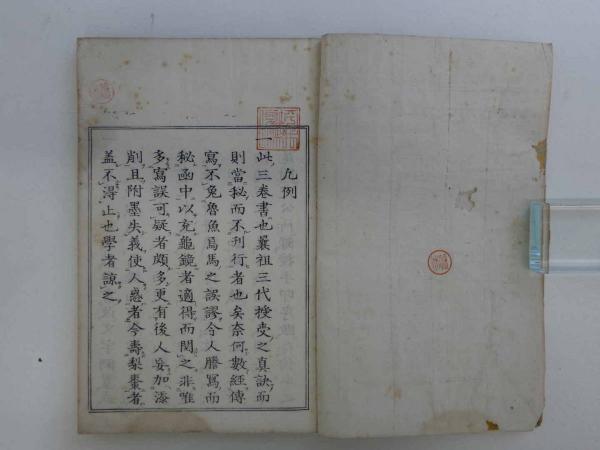 凡例
一此三卷書也曩祖三代授受之真訣而
則當秘而不刊行者也矣奈何數經傳
寫不免魯魚焉馬之誤謬今人謄寫而
秘函中以充龜鏡者適得而閱之非唯
多寫誤可疑者頗多更有後人妄加添
削且附墨失義使人惑者今壽梨棗者
蓋不得止也學者諒之